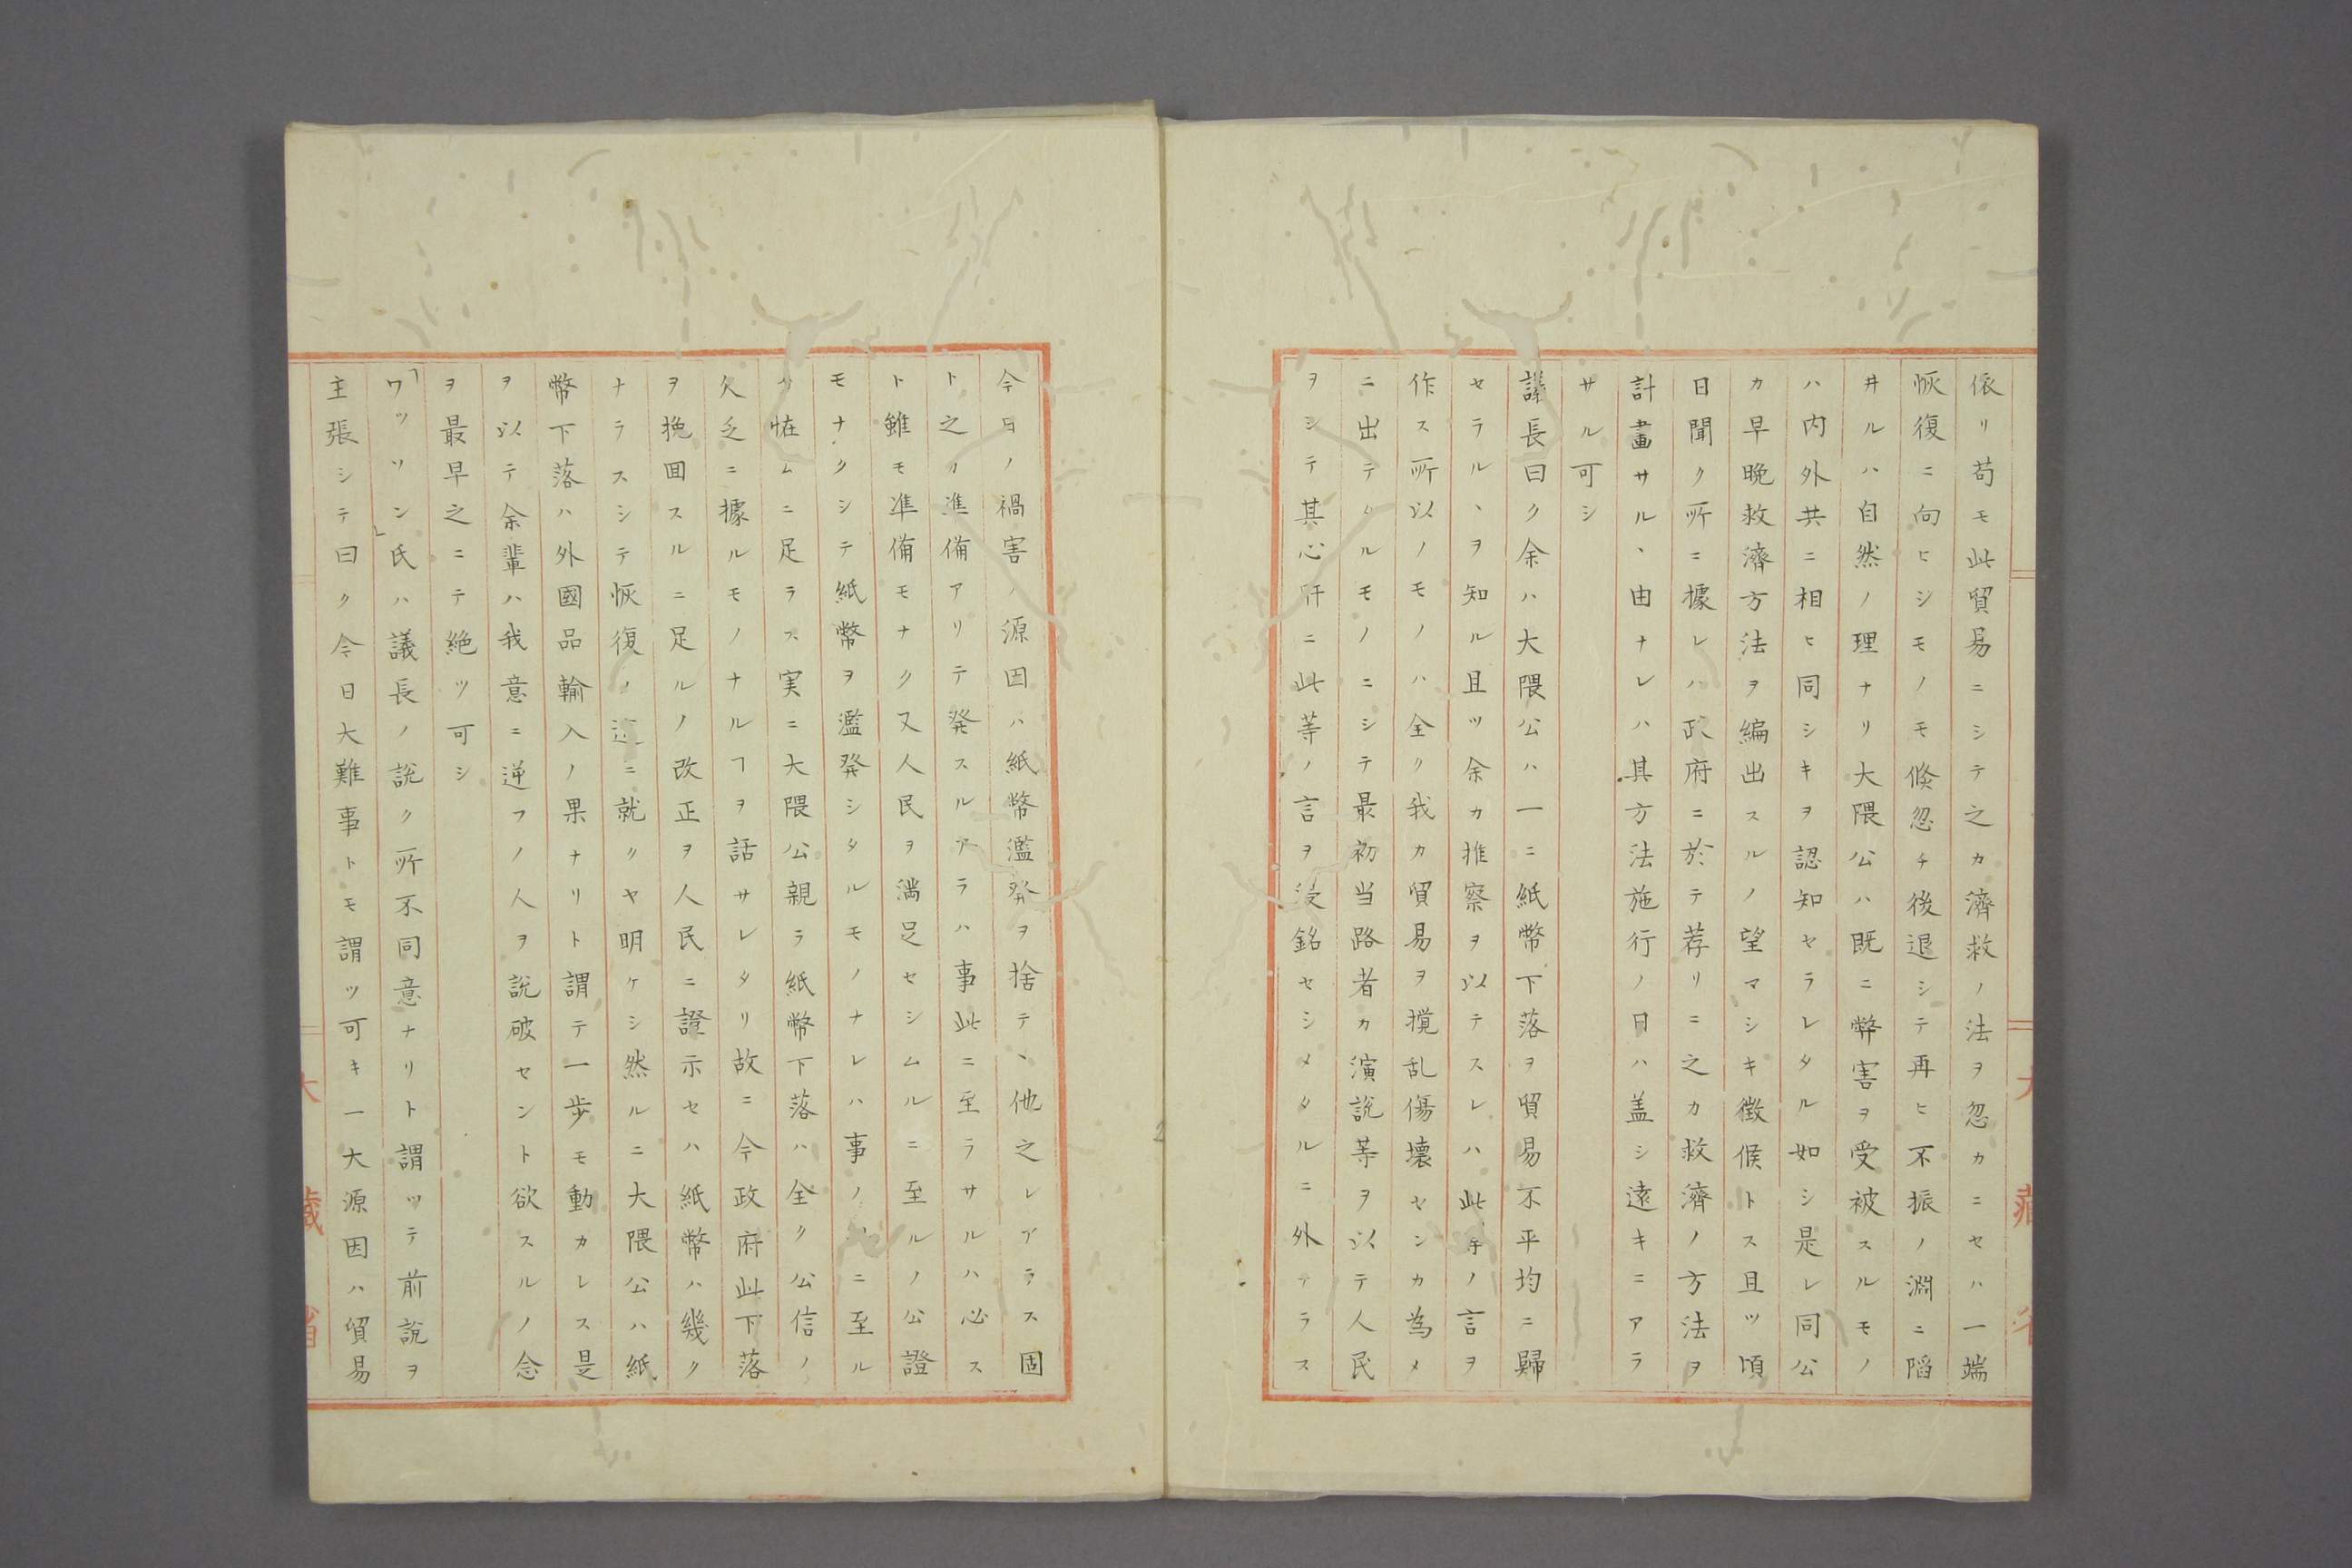 依リ苟モ此貿易ニシテ之カ濟救ノ法ヲ忽カニセハ一端
恢復ニ向ヒシモノモ倏忽チ後退シテ再ヒ不振ノ淵ニ陷
井ルハ自然ノ理ナリ大隈公ハ既ニ弊害ヲ受被スルモノ
ハ内外共ニ相ヒ同シキヲ認知セラレタル如シ是レ同公
カ早晩救濟方法ヲ編出スルノ望マシキ徴候トス且ツ頃
日聞ク所ニ據レハ政府ニ於テ荐リニ之カ救濟ノ方法ヲ
計畫サル、由ナレハ其方法施行ノ日ハ盖シ遠キニアラ
サル可シ
議長曰ク余ハ大隈公ハ一ニ紙幣下落ヲ貿易不平均ニ歸
セラル、ヲ知ル且ツ余カ推察ヲ以テスレハ此等ノ言ヲ
作ス所以ノモノハ全ク我カ貿易ヲ攪乱傷壊センカ為メ
ニ出テタルモノニシテ最初当路者カ演説等ヲ以テ人民
ヲシテ其心肝ニ此等ノ言ヲ浸銘セシメタルニ外ナラス
今日ノ禍害ノ源因ハ紙幣濫発ヲ捨テ、他之レアラス固
ト之カ準備アリテ発スルアラハ事此ニ至ラサルハ必ス
ト雖モ準備モナク又人民ヲ満足セシムルニ至ルノ公證
モナクシテ紙幣ヲ濫発シタルモノナレハ事ノ ニ至ル
ヲ恠ムニ足ラス実ニ大隈公親ラ紙幣下落ハ全ク公信ノ
欠乏ニ據ルモノナルヿヲ話サレタリ故ニ今政府此下落
ヲ挽囬スルニ足ルノ改正ヲ人民ニ證示セハ紙幣ハ幾ク
ナラスシテ恢復ノ途ニ就クヤ明ケシ然ルニ大隈公ハ紙
幣下落ハ外國品輸入ノ果ナリト謂テ一歩モ動カレス是
ヲ以テ余輩ハ我意ニ逆フノ人ヲ説破セント欲スルノ念
ヲ最早之ニテ絶ツ可シ
「ワッソン」氏ハ議長ノ説ク所不同意ナリト謂ツテ前説ヲ
主張シテ曰ク今日大難事トモ謂ツ可キ一大源因ハ貿易
大藏省
大藏省